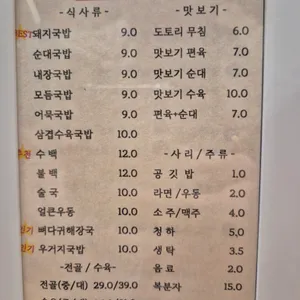 - 식 사 류 -
BEST 돼지국밥 9.0
순대국밥 9.0
내장국밥 9.0
모듬국밥 9.0
어묵국밥 9.0
삼겹수육국밥 10.0
추천 수 백 12.0
볼 백 12.0
술 국 10.0
얼큰우동 10.0
인기 뼈다귀해장국 10.0
인기 우거지국밥 10.0
-전골 / 수육-
전골(중/대) 29.0/39.0
- 맛 보 기 -
도토리 무침 6.0
맛보기 편육 7.0
맛보기 순대 7.0
맛보기 수육 10.0
편육+순대 7.0
- 사 리 / 주 류 -
공 깃 밥 1.0
라면 /우동 2.0
소 주/맥주 4.0
청 하 5.0
생 탁 3.5
음 료 2.0
복분자 15.0